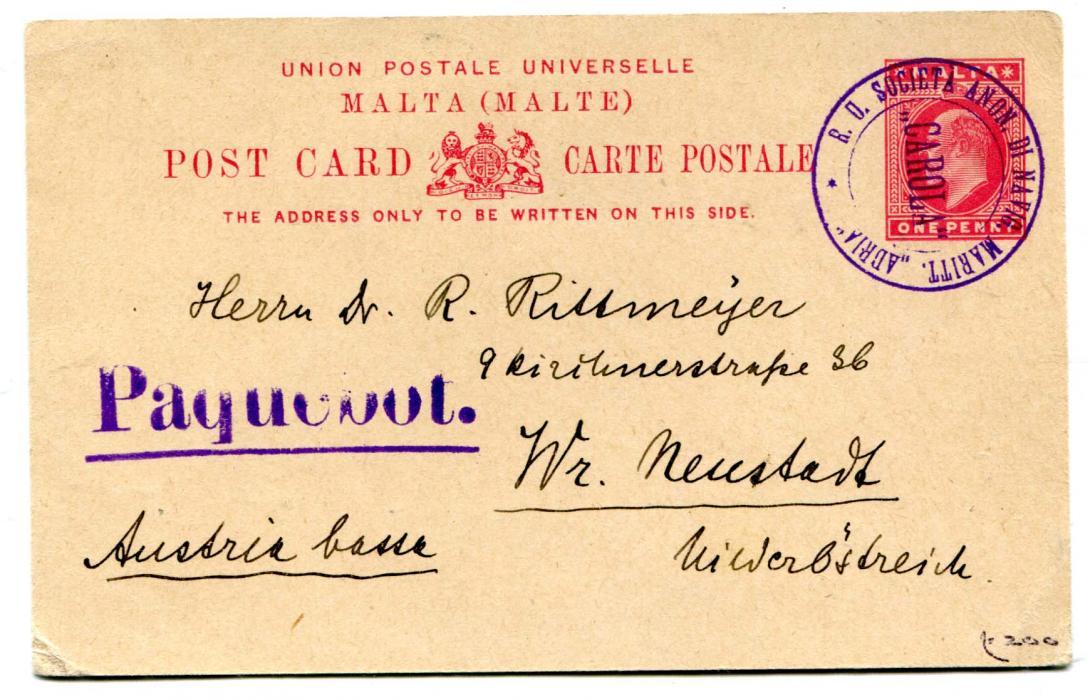 UNION POSTALE UNIVERSELLE
MALTA (MALTE)
POST CARD CARTE POSTALE
THE ADDRESS ONLY TO BE WRITTEN ON THIS SIDE.
MALTA
ONE PENNY
R. U. SOCIETA ANON. DI NAVIG. MARITT. „ADRIA“
„CAROLA“
Herrn Dr. R. Rittmeyer
36
Paquebot.
Wr. Neustadt
Austria bassa
Niederöstreich.
200